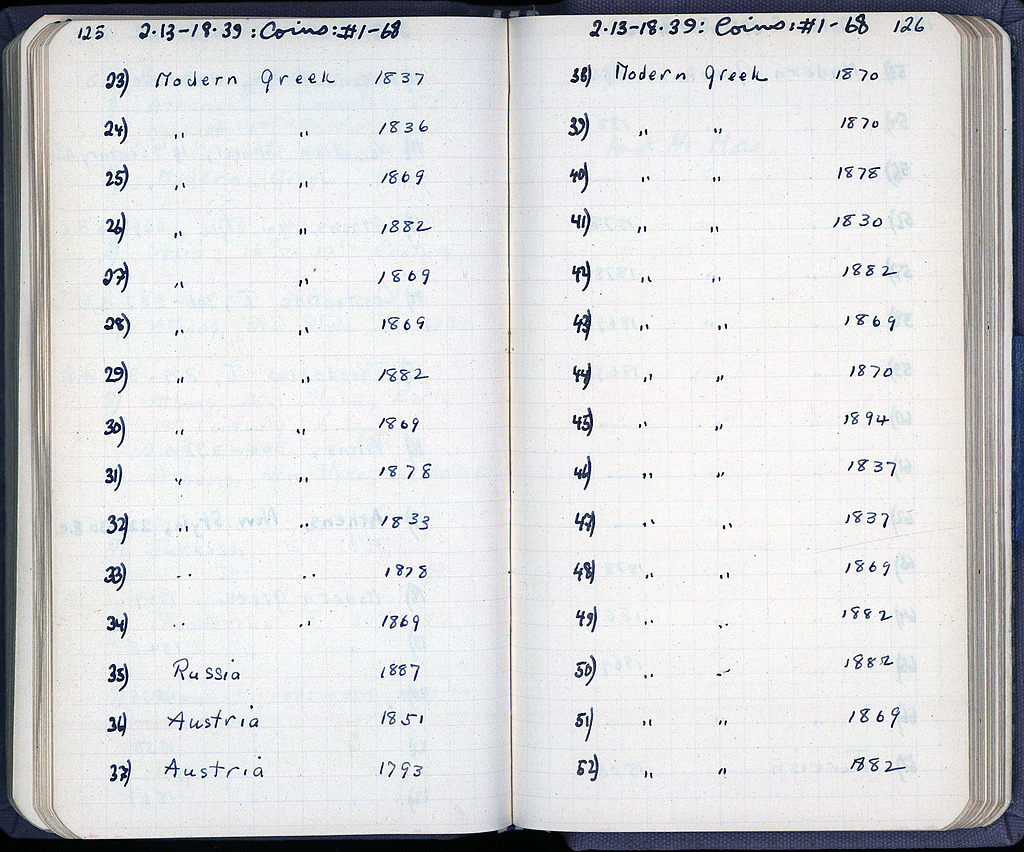 125 2-13-18-39: Coins: #1-68
23) Modern Greek 1837
24) " " 1836
25) " " 1869
26) " " 1882
27) " " 1869
28) " " 1869
29) " " 1882
30) " " 1869
31) " " 1878
32) " " 1833
33) " " 1878
34) " " 1869
35) Russia 1887
36) Austria 1851
37) Austria 1793
2-13-18-39: Coins: #1-68 126
38) Modern Greek 1870
39) " " 1870
40) " " 1878
41) " " 1830
42) " " 1882
43) " " 1869
44) " " 1870
45) " " 1894
46) " " 1837
47) " " 1837
48) " " 1869
49) " " 1882
50) " " 1882
51) " " 1869
52) " " 1882